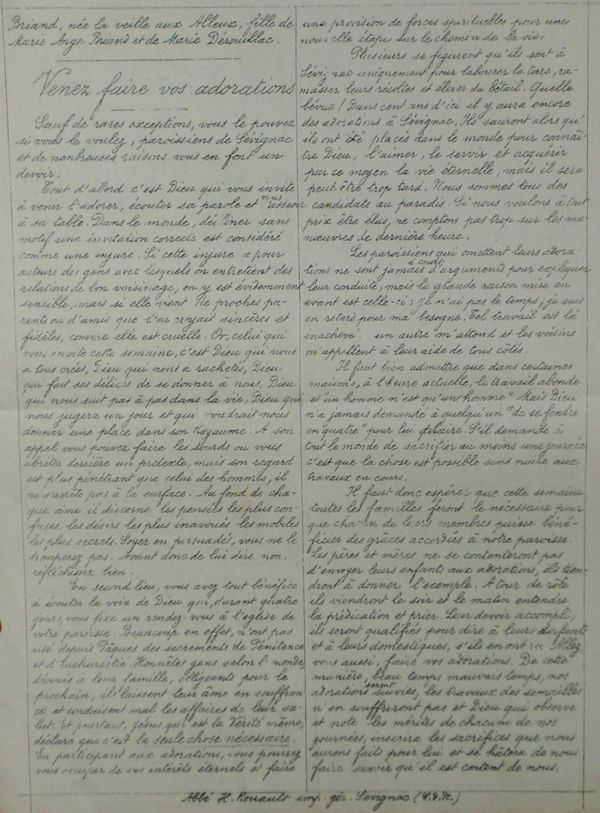 Briand, née la veille aux Alleux, fille de
Marie Ange Briand et de Marie Dérouillac.
Venez faire vos adorations
Sauf de rares exceptions, vous le pouvez
si vous le voulez, paroissiens de Sévignac
et de nombreuses raisons vous en font un
devoir.
Tout d'abord c'est Dieu qui vous invite
à venir l'adorer, écouter sa parole et vous asseoir
à sa table. Dans le monde, décliner sans
motif une invitation correcte est considéré
comme une injure. Si cette injure a pour
auteurs des gens avec lesquels on entretient des
relations de bon voisinage, on y est évidemment
sensible, mais si elle vient de proches pa-
rents ou d'amis que l'on croyait sincères et
fidèles, comme elle est cruelle. Or, celui qui
vous invite cette semaine, c'est Dieu qui nous
a tous créés, Dieu qui nous a rachetés, Dieu
qui fait ses délices de se donner à nous, Dieu
qui nous suit pas à pas dans la vie, Dieu qui
nous jugera un jour et qui voudrait nous
donner une place dans son royaume. A son
appel vous pouvez faire les sourds ou vous
abriter derrière un prétexte, mais son regard
est plus pénétrant que celui des hommes, il
ne s'arrête pas à la surface. Au fond de cha-
que âme il discerne les pensées les plus con-
fuses, les désirs les plus inavoués, les mobiles
les plus secrets. Soyez en persuadés, vous ne le
tromperez pas. Avant donc de lui dire non,
réfléchissez bien.
En second lieu, vous avez tout bénéfice
à écouter la voix de Dieu qui, durant quatre
jours, vous fixe un rendez-vous à l'église de
votre paroisse. Beaucoup en effet, n'ont pas
usé depuis Pâques des sacrements de Pénitence
et d'Eucharistie. Honnêtes gens selon le monde,
dévoués à leur famille, obligeants pour le
prochain, ils laissent leur âme en souffran-
ce et conduisent mal les affaires de leur sa-
lut. Et pourtant, Jésus, qui est la Vérité même,
déclare que c'est la seule chose nécessaire.
En participant aux adorations, vous pourrez
vous occuper de vos intérêts éternels et faire
une provision de forces spirituelles pour une
nouvelle étape sur le chemin de la vie.
Plusieurs se figurent qu'ils sont à
Sévignac uniquement pour labourer la terre, ra-
masser leurs récoltes et élever du bétail. Quelle
bévue! Dans cent ans d'ici il y aura encore
des adorations à Sévignac. Ils sauront alors qu'
ils ont été placés dans le monde pour connaî-
tre Dieu, l'aimer, le servir et acquérir
par ce moyen la vie éternelle, mais il sera
peut être trop tard. Nous sommes tous des
candidats au paradis. Si nous voulons à tout
prix être élus, ne comptons pas trop sur les ma-
nœuvres de dernière heure.
Les paroissiens qui omettent leurs adora-
tions ne sont jamais à court d'arguments pour expliquer
leur conduite, mais la grande raison mise en
avant est celle-ci: Je n'ai pas le temps, je suis
en retard pour ma besogne, Tel travail est là
inachevé un autre m'attend et les voisins
m'appellent à leur aide de tous côtés.
Il faut bien admettre que dans certaines
maisons, à l'heure actuelle, le travail abonde
et un homme n'est qu'un homme" Mais Dieu
n'a jamais demandé à quelqu'un "de se fendre
en quatre" pour lui plaire. S'il demande à
tout le monde de sacrifier au moins une journée
c'est que la chose est possible sans nuire aux
travaux en cours.
Il faut donc espérer que cette semaine
toutes les familles feront le nécessaire pour
que chacun de leurs membres puisse béné-
ficier des grâces accordées à notre paroisse.
Les pères et mères ne se contenteront pas
d'envoyer leurs enfants aux adorations, ils tien-
dront à donner l'exemple. A tour de rôle
ils viendront le soir et le matin entendre
la prédication et prier. Leur devoir accompli,
ils seront qualifiés pour dire à leurs enfants
et à leurs domestiques, s'ils en ont: Allez
vous aussi, faire vos adorations. De cette
manière, beau temps mauvais temps, nos
adorations seront suivies, les travaux des semailles
n'en souffriront pas et Dieu qui observe
et note les mérites de chacun de nos
journées, inscrira les sacrifices que nous
aurons faits pour lui et se hâtera de nous
faire savoir qu'il est content de nous.
Abbé H. Rouault imp. gér. Sevignac (C.d.N.)